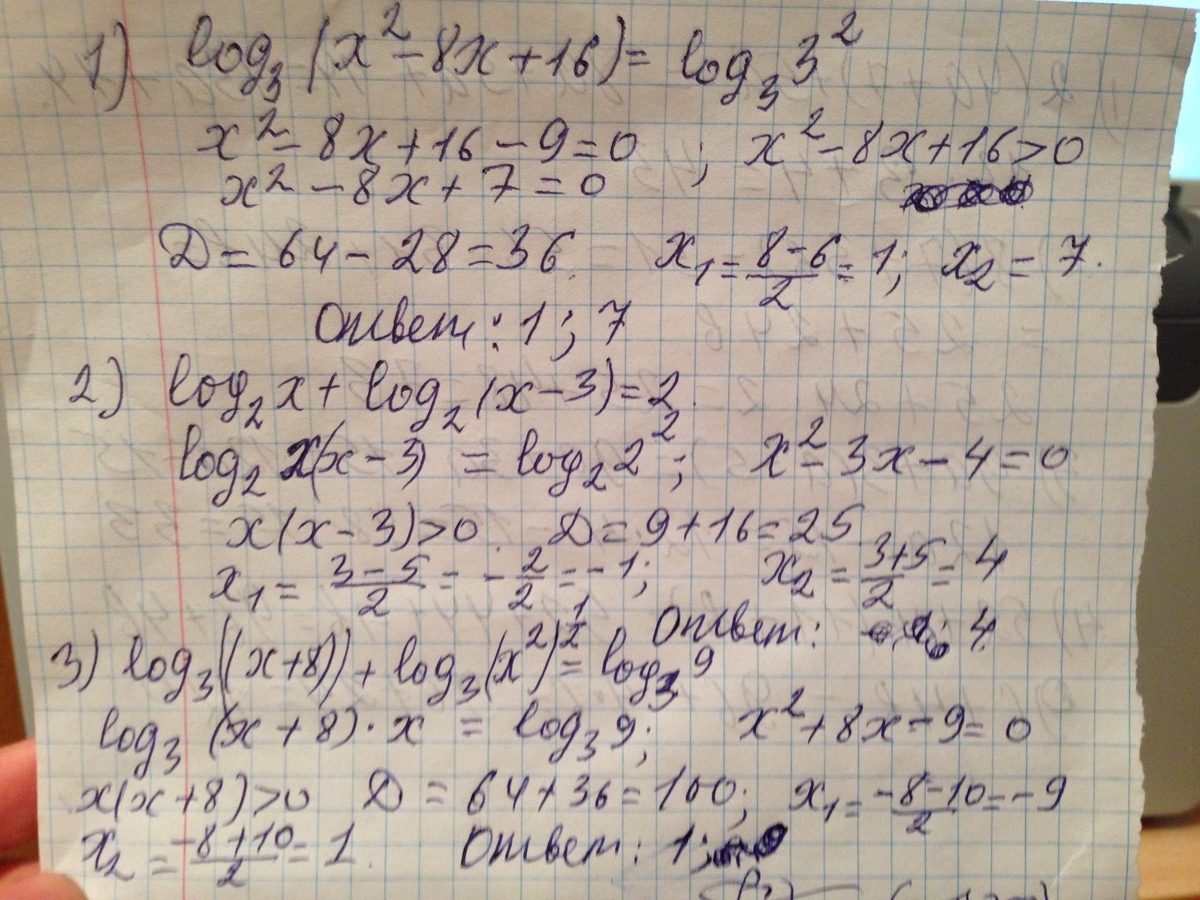 1) log₃(x²-8x+16)= log₃3²
x²-8x+16-9=0 ; x²-8x+16>0
x²-8x+7=0
D=64-28=36. x₁=(8-6)/2=1; x₂=7.
Ответ: 1; 7
2) log₂x+log₂(x-3)=2.
log₂x(x-3) = log₂2²; x²-3x-4=0
x(x-3)>0. D=9+16=25
x₁=(3-5)/2=-2/2=-1; x₂=(3+5)/2=4
Ответ: 4.
3) log₃((x+8))+log₃(x²)^(1/2)=log₃9
log₃(x+8)·x = log₃9; x²+8x-9=0
x(x+8)>0 D=64+36=100; x₁=(-8-10)/2=-9
x₂=(-8+10)/2=1. Ответ: 1;